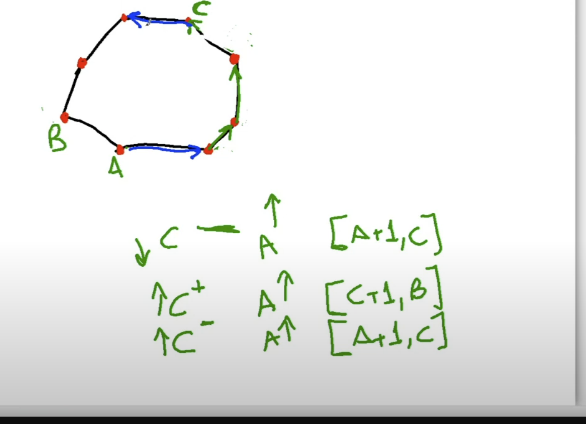 C
B
A
↓ C — A ↑ [A+1, C]
↑ C + A ↑ [C+1, B]
↑ C - A ↑ [A+1, C]